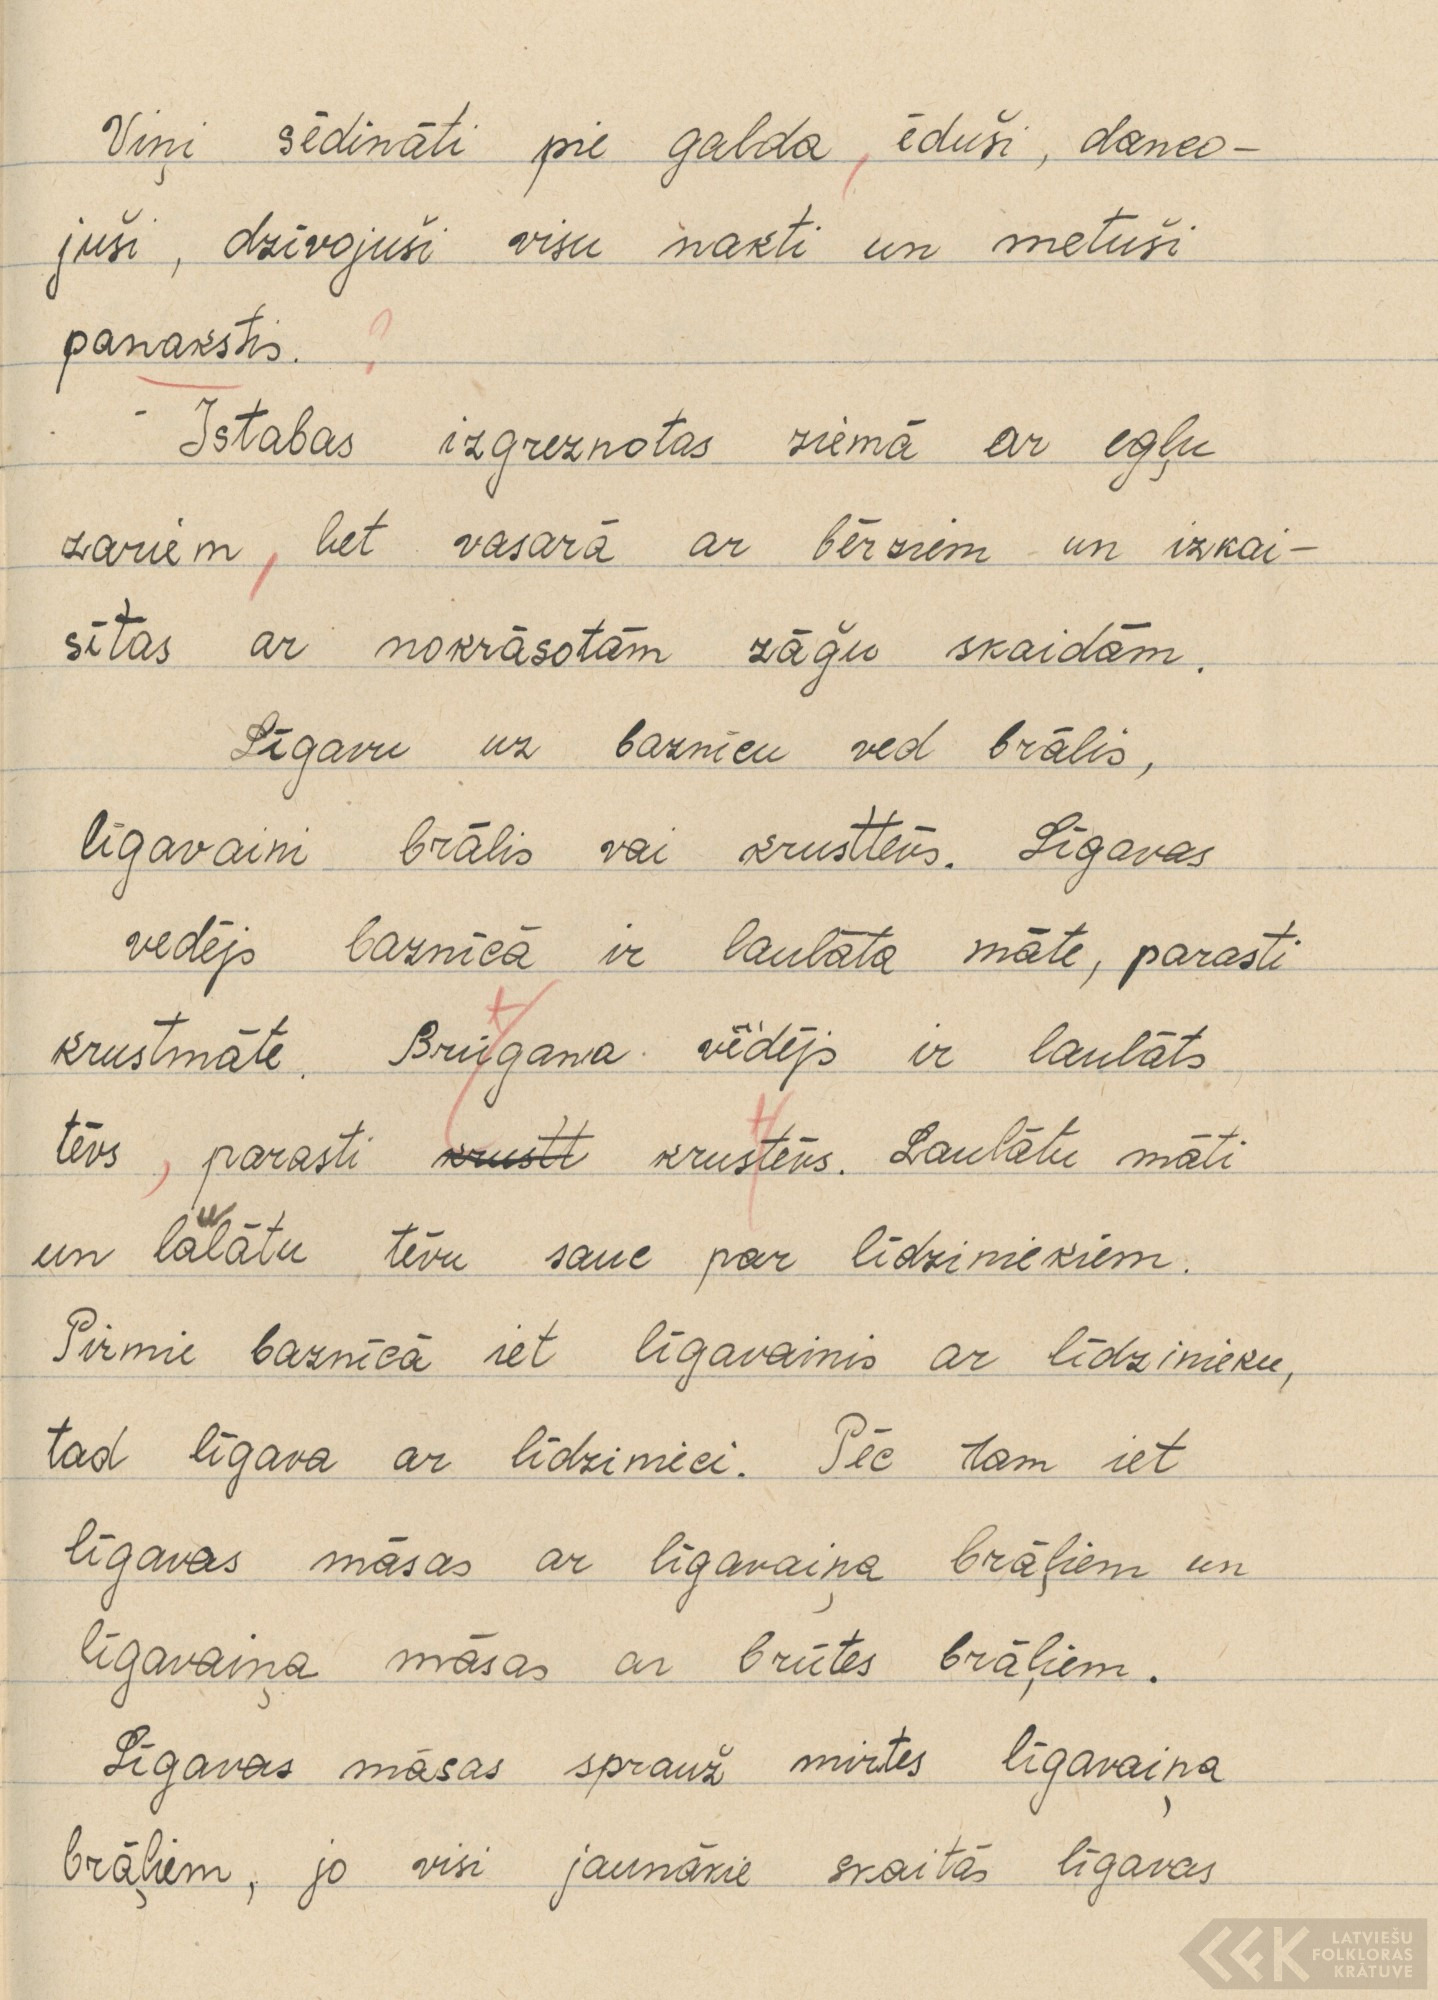 Viņi sēdināti pie galda, ēduši, danco-
juši, dzīvojuši visu nakti un metuši
panakstis. ?
- Istabas izgreznotas ziemā ar egļu
zariem, bet vasarā ar bērziem un izkai-
sītas ar nokrāsotām zāğu skaidām.
Līgavu uz baznīcu ved brālis,
līgavaini brālis vai krusttēvs. Līgavas
vedējs baznīcā ir laulāta māte, parasti
krustmāte. Brūgana vēdējs ir laulāts
tēvs, parasti krustt krustēvs. Laulātu māti
un laulātu tēvu sauc par līdziniekiem.
Pirmie baznīcā iet līgavainis ar līdzinieku,
tad līgava ar līdzinieci. Pēc tam iet
līgavas māsas ar līgavaiņa brāļiem un
līgavaiņa māsas ar brūtes brāļiem.
Līgavas māsas sprauž mirtes līgavaiņa
brāļiem, jo visi jaunākie skaitās līgavas
LATVIEŠU
FOLKLORAS
KRĀTUVE